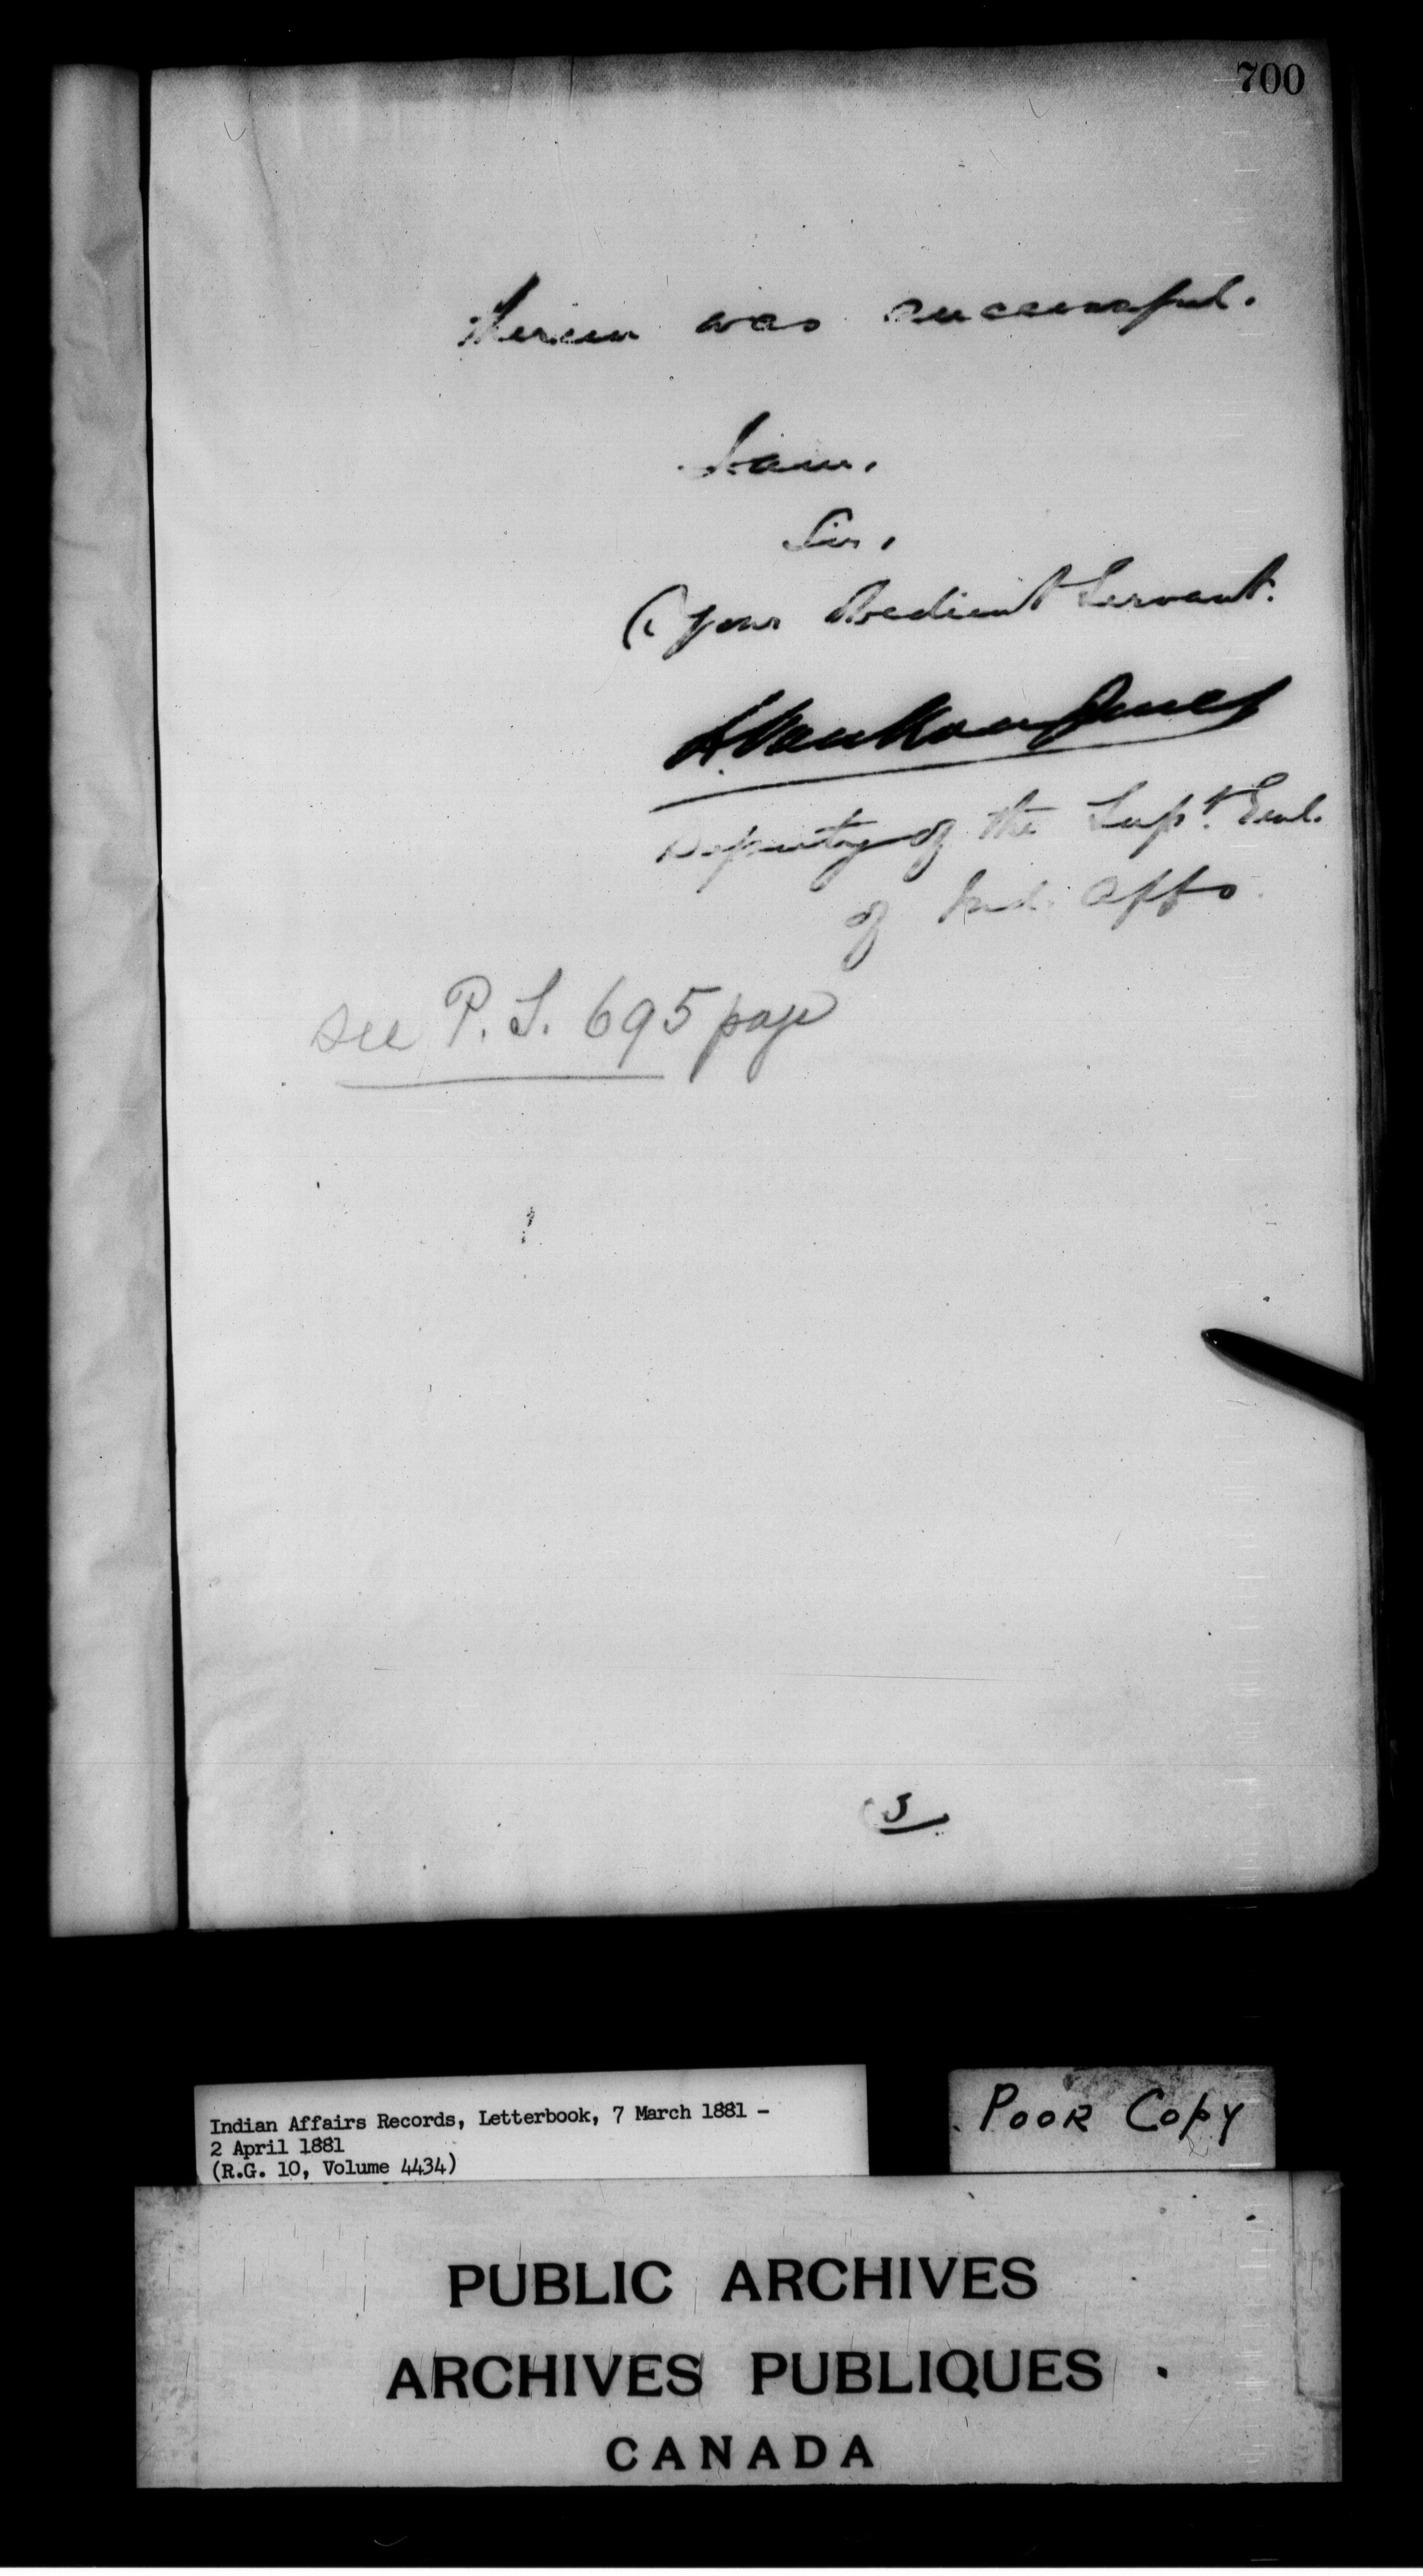 700
therein was successful.
I am,
Sir,
Your Obedient Servant.
L. VanKoughnet
Deputy of the Supt. Genl.
of Ind. Affs
see P.S. 695 page
Indian Affairs Records, Letterbook, 7 March 1881 -
2 April 1881
(R.G. 10, Volume 4434)
POOR COPY
PUBLIC ARCHIVES
ARCHIVES PUBLIQUES
CANADA